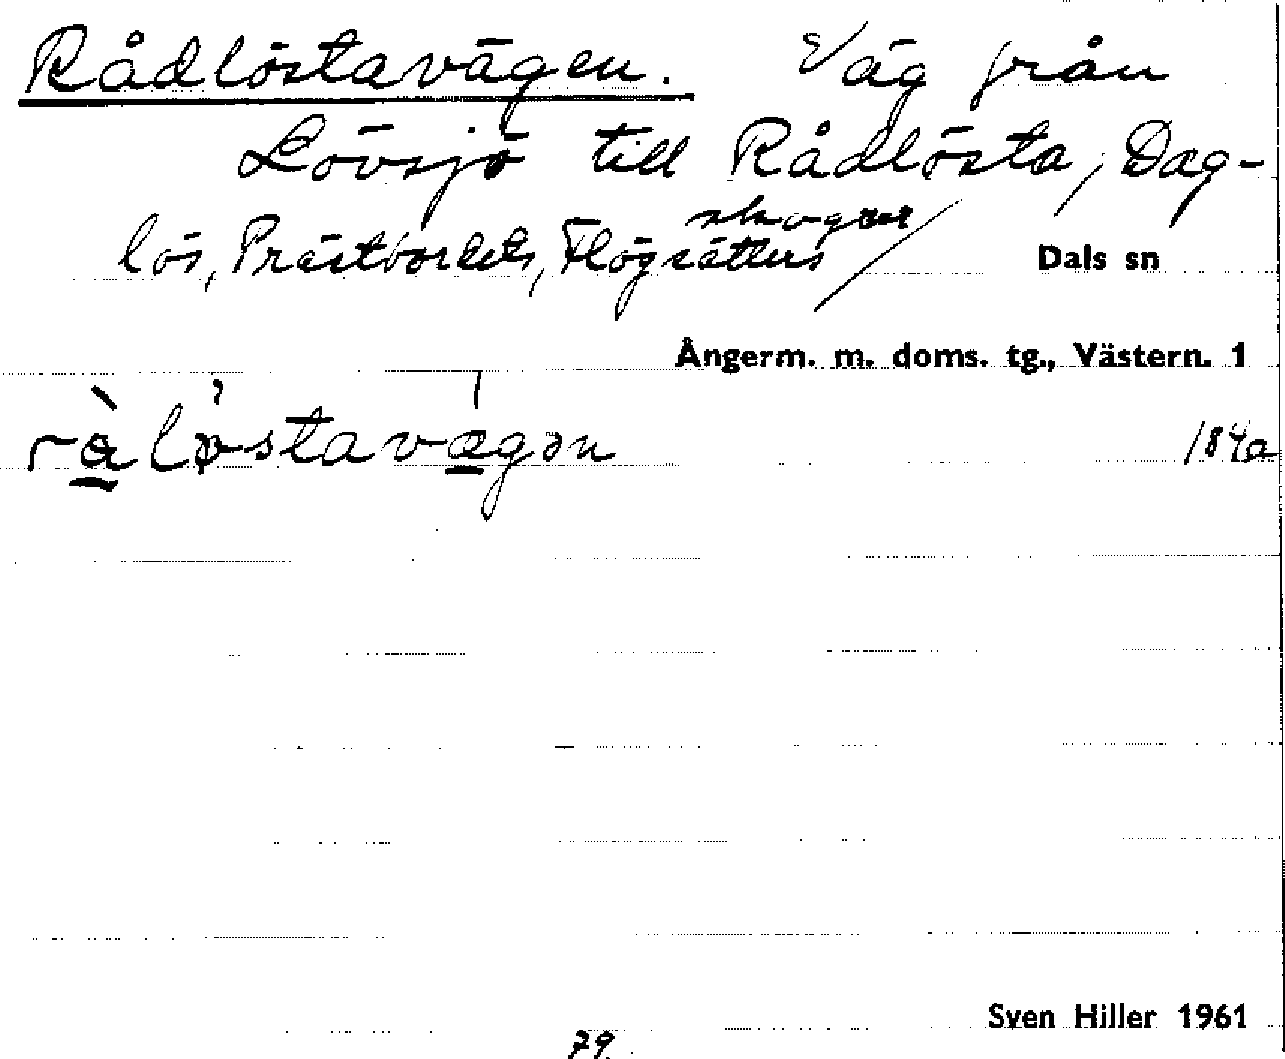 Rådlöstavägen. Väg från
Lövsjö till Rådlösta, Dag-
lös, Prästbordets, Flögsätters skogar
Dals sn
Ångerm. m. doms. tg., Västern. 1
ràløstavægən
184a
Sven Hiller 1961
79.